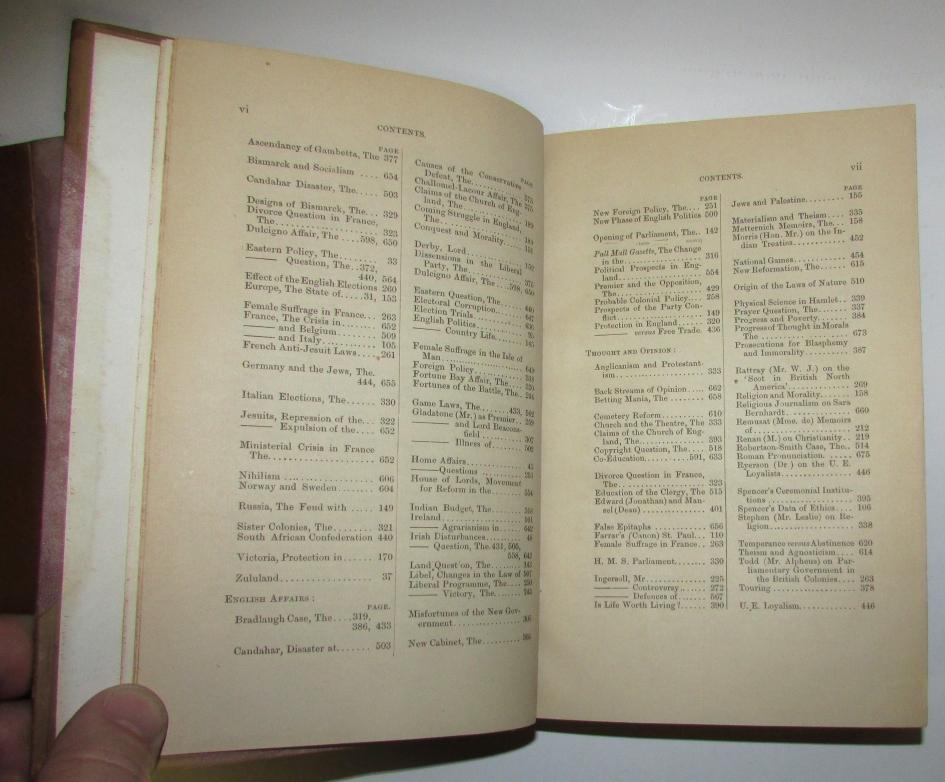 vi
CONTENTS.
PAGE
Ascendancy of Gambetta, The 377
Bismarck and Socialism .... 654
Candahar Disaster, The.... 503
Designs of Bismarck, The... 329
Divorce Question in France,
The.................... 323
Dulcigno Affair, The ....598, 650
Eastern Policy, The........ 33
—— Question, The...372,
440, 564
Effect of the English Elections 260
Europe, The State of....31, 153
Female Suffrage in France... 263
France, The Crisis in....... 652
—— and Belgium....... 509
—— and Italy.......... 105
French Anti-Jesuit Laws.... 261
Germany and the Jews, The.
444, 655
Italian Elections, The...... 330
Jesuits, Repression of the... 322
—— Expulsion of the... 652
Ministerial Crisis in France
The................... 652
Nihilism ................. 606
Norway and Sweden ...... 604
Russia, The Feud with .... 149
Sister Colonies, The....... 321
South African Confederation 440
Victoria, Protection in..... 170
Zululand................. 37
ENGLISH AFFAIRS :
PAGE.
Bradlaugh Case, The ...319,
386, 433
Candahar, Disaster at...... 503
PAGE
Causes of the Conservative
Defeat, The............
Challomel-Lacour Affair, The
Claims of the Church of Eng-
land, The..............
Coming Struggle in England,
The...................
Conquest and Morality.....
Derby, Lord..............
Dissensions in the Liberal
Party, The.............
Dulcigno Affair, The...598, 650
Eastern Question, The......
Electoral Corruption.......
Election Trials...........
English Politics...........
—— Country Life....
Female Suffrage in the Isle of
Man...................
Foreign Policy............
Fortune Bay Affair, The....
Fortunes of the Battle, The..
Game Laws, The......433, 502
Gladstone (Mr.) as Premier..
—— and Lord Beacons-
field .............. 307
—— Illness of..........
Home Affairs.............
——Questions ........
House of Lords, Movement
for Reform in the....... 554
Indian Budget, The.......
Ireland...................
—— Agrarianism in.....
Irish Disturbances........
—— Question, The.431, 505,
558, 647
Land Question, The.......
Libel, Changes in the Law of 507
Liberal Programme, The...
—— Victory, The.......
Misfortunes of the New Gov-
ernment...............
New Cabinet, The.........
vii
CONTENTS.
PAGE
New Foreign Policy, The... 251
New Phase of English Politics 500
Opening of Parliament, The.. 142
Pall Mall Gazette, The Change
in the................. 316
Political Prospects in Eng-
land................... 554
Premier and the Opposition,
The................... 429
Probable Colonial Policy.... 258
Prospects of the Party Con-
flict................... 149
Protection in England...... 320
—— versus Free Trade. 436
THOUGHT AND OPINION :
Anglicanism and Protestant-
ism................... 333
Back Streams of Opinion.... 662
Betting Mania, The ....... 658
Cemetery Reform ......... 610
Church and the Theatre, The 333
Claims of the Church of Eng-
land, The.............. 393
Copyright Question, The... 518
Co-Education.........591, 633
Divorce Question in France,
The................... 323
Education of the Clergy, The 515
Edward (Jonathan) and Man-
sel (Dean) ............. 401
False Epitaphs ........... 656
Farrar's (Canon) St. Paul... 110
Female Suffrage in France.. 263
H. M. S. Parliament....... 330
Ingersoll, Mr............. 225
—— Controversy ..... 272
—— Defences of....... 567
Is Life Worth Living?...... 390
PAGE
Jews and Palestine......... 155
Materialism and Theism.... 335
Metternich Memoirs, The... 158
Morris (Hon. Mr.) on the In-
dian Treaties........... 452
National Games .......... 454
New Reformation, The..... 615
Origin of the Laws of Nature 510
Physical Science in Hamlet.. 339
Prayer Question, The...... 337
Progress and Poverty...... 384
Progress of Thought in Morals
The .................. 673
Prosecutions for Blasphemy
and Immorality......... 387
Rattray (Mr. W. J.) on the
'Scot in British North
America'............... 269
Religion and Morality...... 158
Religious Journalism on Sara
Bernhardt.............. 660
Remusat (Mme. de) Memoirs
of..................... 212
Renan (M.) on Christianity.. 219
Robertson-Smith Case, The.. 514
Roman Pronunciation...... 675
Ryerson (Dr) on the U. E.
Loyalists............... 446
Spencer's Ceremonial Institu-
tions .................. 395
Spencer's Data of Ethics.... 106
Stephen (Mr. Leslie) on Re-
ligion.................. 338
Temperance versus Abstinence 620
Theism and Agnosticism.... 614
Todd (Mr. Alpheus) on Par-
liamentary Government in
the British Colonies..... 263
Touring .................. 378
U. E. Loyalism........... 446